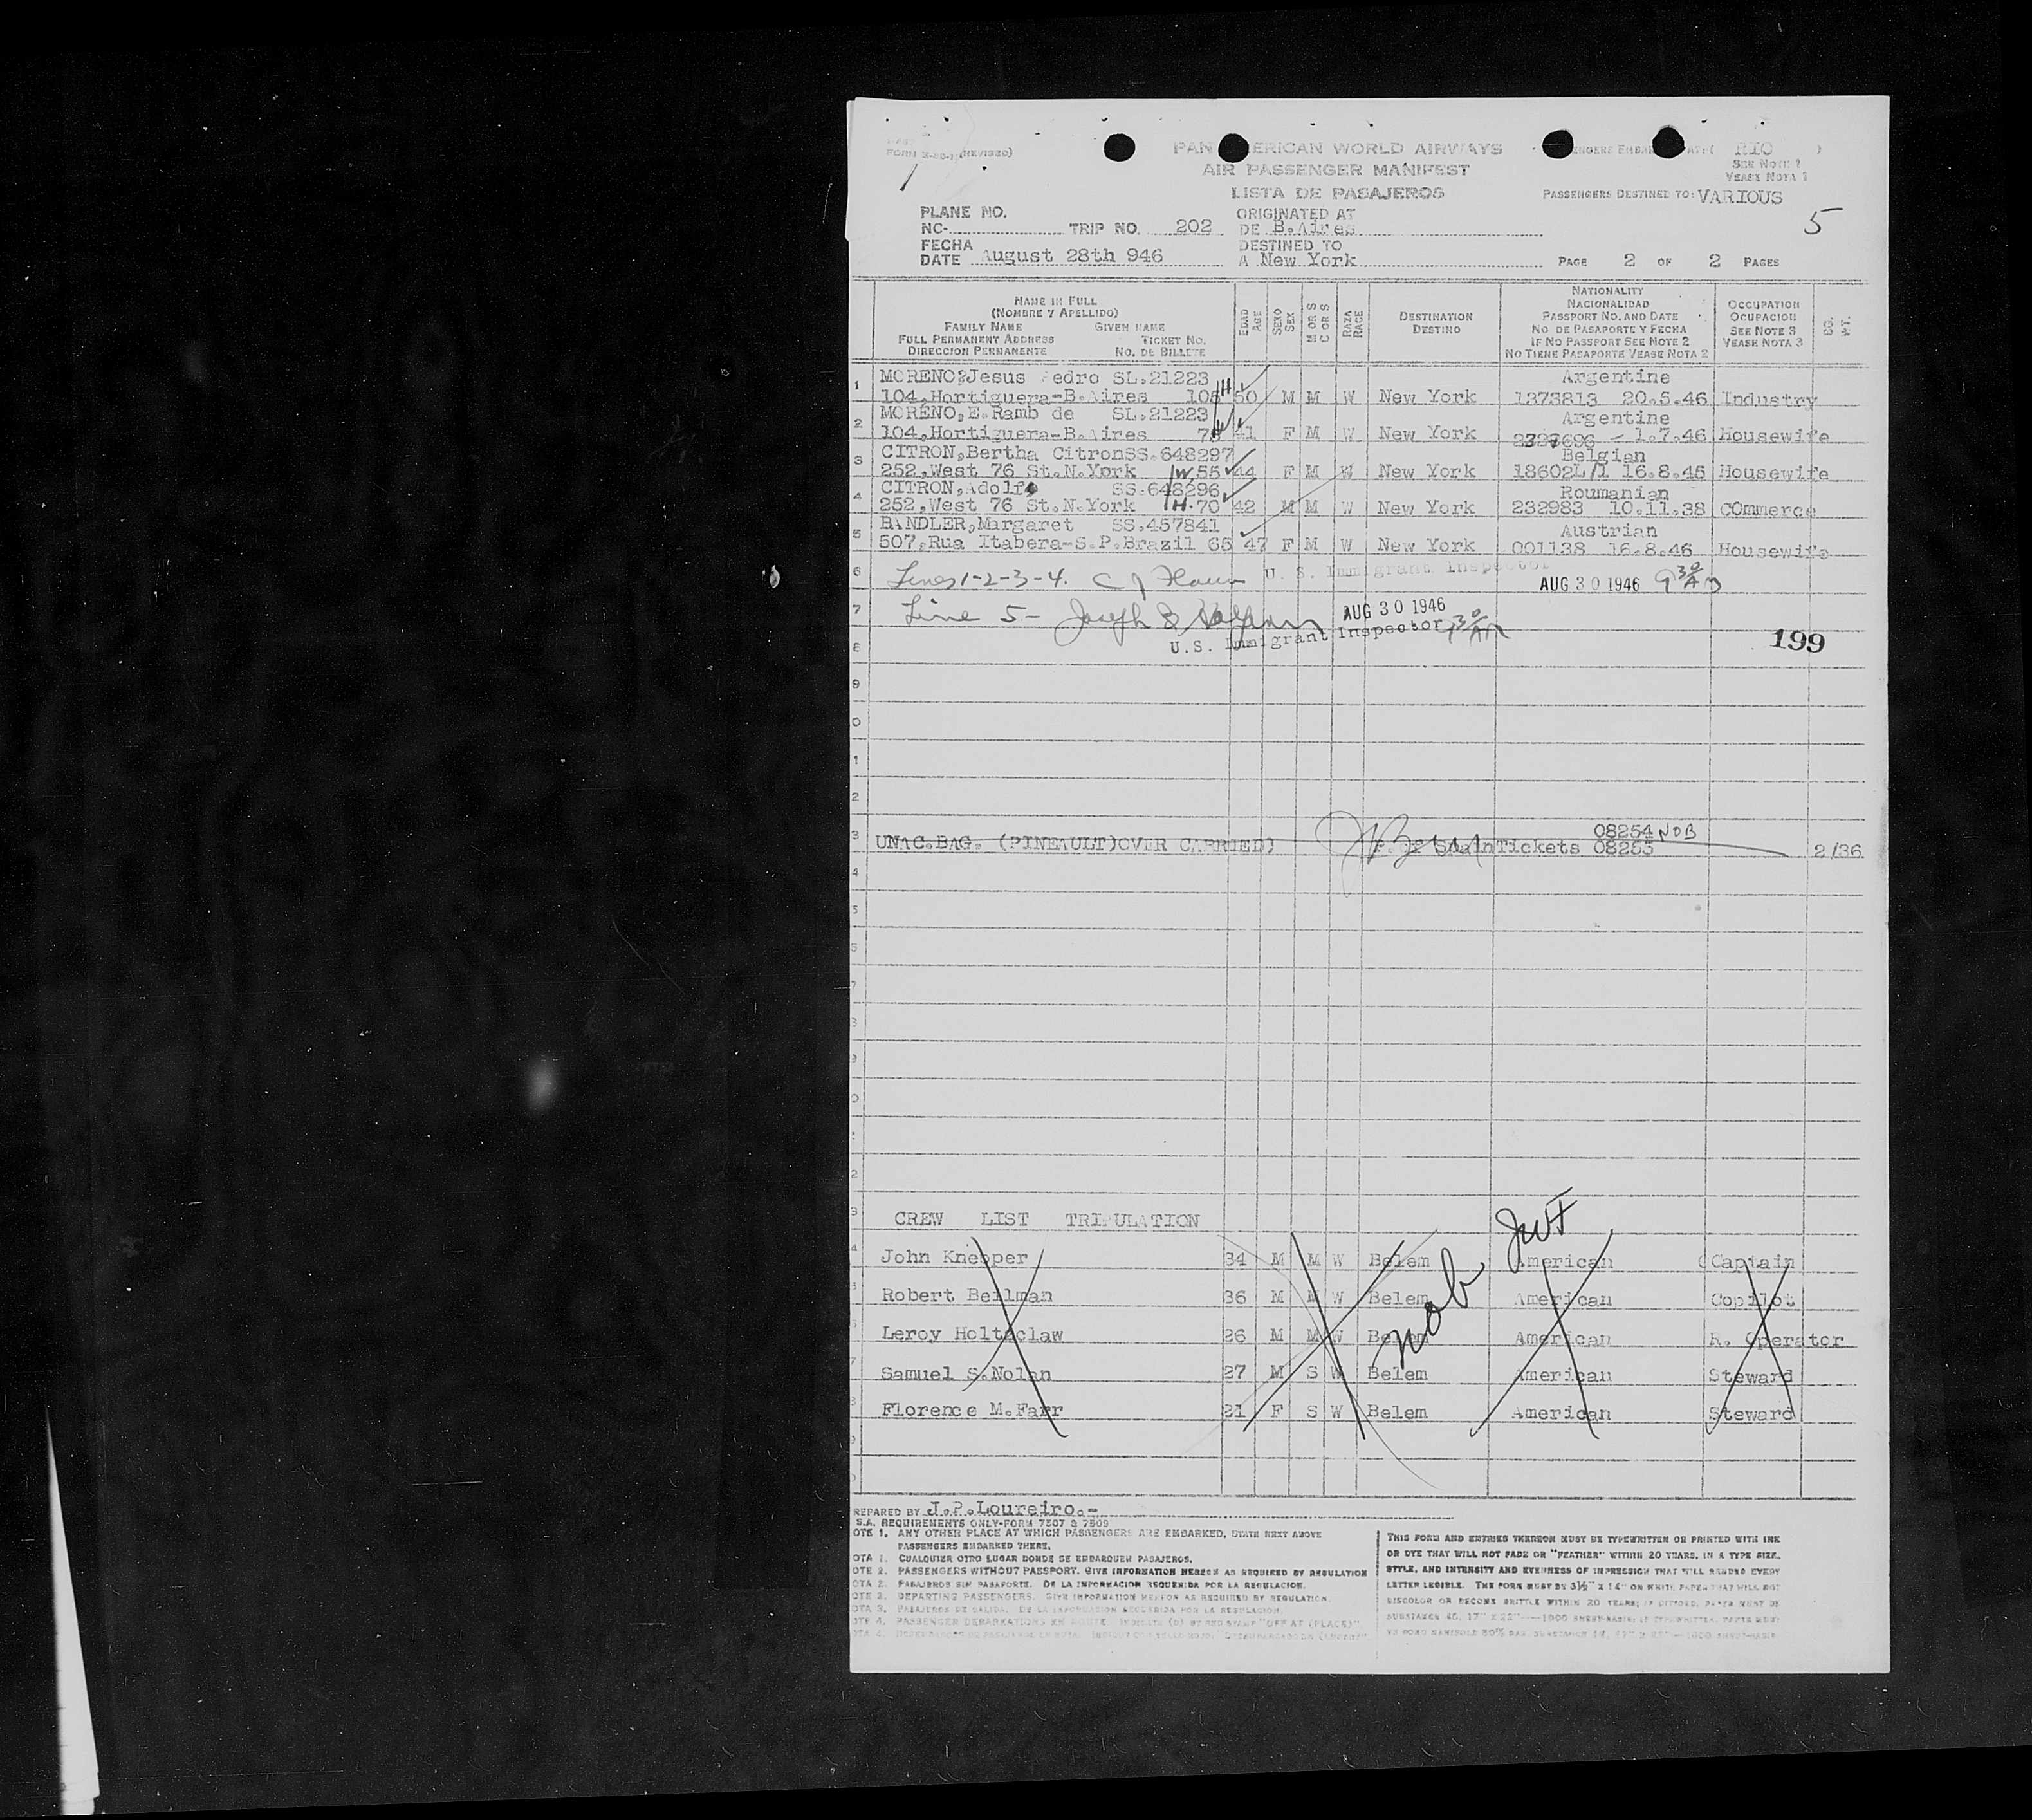 FORM X-20-1 (REVISED)
PAN AMERICAN WORLD AIRWAYS
AIR PASSENGER MANIFEST
LISTA DE PASAJEROS
RIO
SEE NOTE 1
VEASE NOTA 1
PASSENGERS DESTINED TO: VARIOUS
5
PLANE NO.
NC- TRIP NO. 202
ORIGINATED AT
DE B.Aires
FECHA
DATE August 28th 946
DESTINED TO
A New York
PAGE 2 OF 2 PAGES
NAME IN FULL
(NOMBRE Y APELLIDO)
FAMILY NAME GIVEN NAME
FULL PERMANENT ADDRESS TICKET NO.
DIRECCION PERMANENTE NO. DE BILLETE
EDAD AGE
SEXO SEX
M OR S C OR S
RAZA RACE
DESTINATION
DESTINO
NATIONALITY
NACIONALIDAD
PASSPORT NO. AND DATE
NO. DE PASAPORTE Y FECHA
IF NO PASSPORT SEE NOTE 2
NO TIENE PASAPORTE VEASE NOTA 2
OCCUPATION
OCUPACION
SEE NOTE 3
VEASE NOTA 3
1 MORENO,Jesus Pedro SL.21223 Argentine
104,Hortiguera-B.Aires 105 H 50 M M W New York 1373813 20.5.46 Industry
2 MORENO,E.Ramb de SL.21223 Argentine
104,Hortiguera-B.Aires 41 F M W New York 1.7.46 Housewife
3 CITRON,Bertha CitronSS.648297 Belgian
252,West 76 St.N.York W 55 44 F M W New York 18602L/1 16.8.45 Housewife
4 CITRON,Adolfo SS.648296 Roumanian
252,West 76 St.N.York H.70 42 M M W New York 232983 10.11.38 COmmerce
5 BANDLER,Margaret SS.457841 Austrian
507,Rua Itabera-S.P.Brazil 65 47 F M W New York 001138 16.8.46 Housewife
6 Lines 1-2-3-4. U. S. Immigrant Inspector
AUG 30 1946 9 30 AM
7 Line 5- Joseph AUG 30 1946
U.S. Immigrant Inspector 30 AM
8 199
9
0
1
2
08254 NOB
3 UNAC.BAG. (PINEAULT)OVER CARRIED) Tickets 08253 2/36
4
CREW LIST TRIPULATION
JWF
John Knepper 34 M M W Belem American Captain
Robert Bellman 36 M M W Belem American Copilot
nob
Leroy Holtzclaw 26 M M W Belem American R. Operator
Samuel S.Nolan 27 M S W Belem American Steward
Florence M.Farr 21 F S W Belem American Steward
REPARED BY J.P.Loureiro.-
S.A. REQUIREMENTS ONLY-FORM 7507 & 7509
OTE 1. ANY OTHER PLACE AT WHICH PASSENGERS ARE EMBARKED, STATE NEXT ABOVE
PASSENGERS EMBARKED THERE.
OTA 1. CUALQUIER OTRO LUGAR DONDE SE EMBARQUEN PASAJEROS.
OTE 2. PASSENGERS WITHOUT PASSPORT. GIVE INFORMATION HEREON AS REQUIRED BY REGULATION
OTA 2. PASAJEROS SIN PASAPORTE. DE LA INFORMACION REQUERIDA POR LA REGULACION.
OTE 3. DEPARTING PASSENGERS. GIVE INFORMATION HEREON AS REQUIRED BY REGULATION.
OTA 3. PASAJEROS DE SALIDA. DE LA INFORMACION REQUERIDA POR LA REGULACION.
OTE 4. PASSENGER DEBARKATIONS EN ROUTE. INDICATE (O) BY RED STAMP "OFF AT (PLACE)"
THIS FORM AND ENTRIES THEREON MUST BE TYPEWRITTEN OR PRINTED WITH INK
OR DYE THAT WILL NOT FADE OR "FEATHER" WITHIN 20 YEARS, IN A TYPE SIZE,
STYLE, AND INTENSITY AND EVENNESS OF IMPRESSION THAT WILL RENDER EVERY
LETTER LEGIBLE. THE FORM MUST BE 8½" X 14" ON WHITE PAPER THAT WILL NOT
DISCOLOR OR BECOME BRITTLE WITHIN 20 YEARS; IF DITTOED, PAPER MUST BE
SUBSTANCE 40, 17" X 22"—1000 SHEET-BASIS; IF TYPEWRITTEN, PAPER MUST